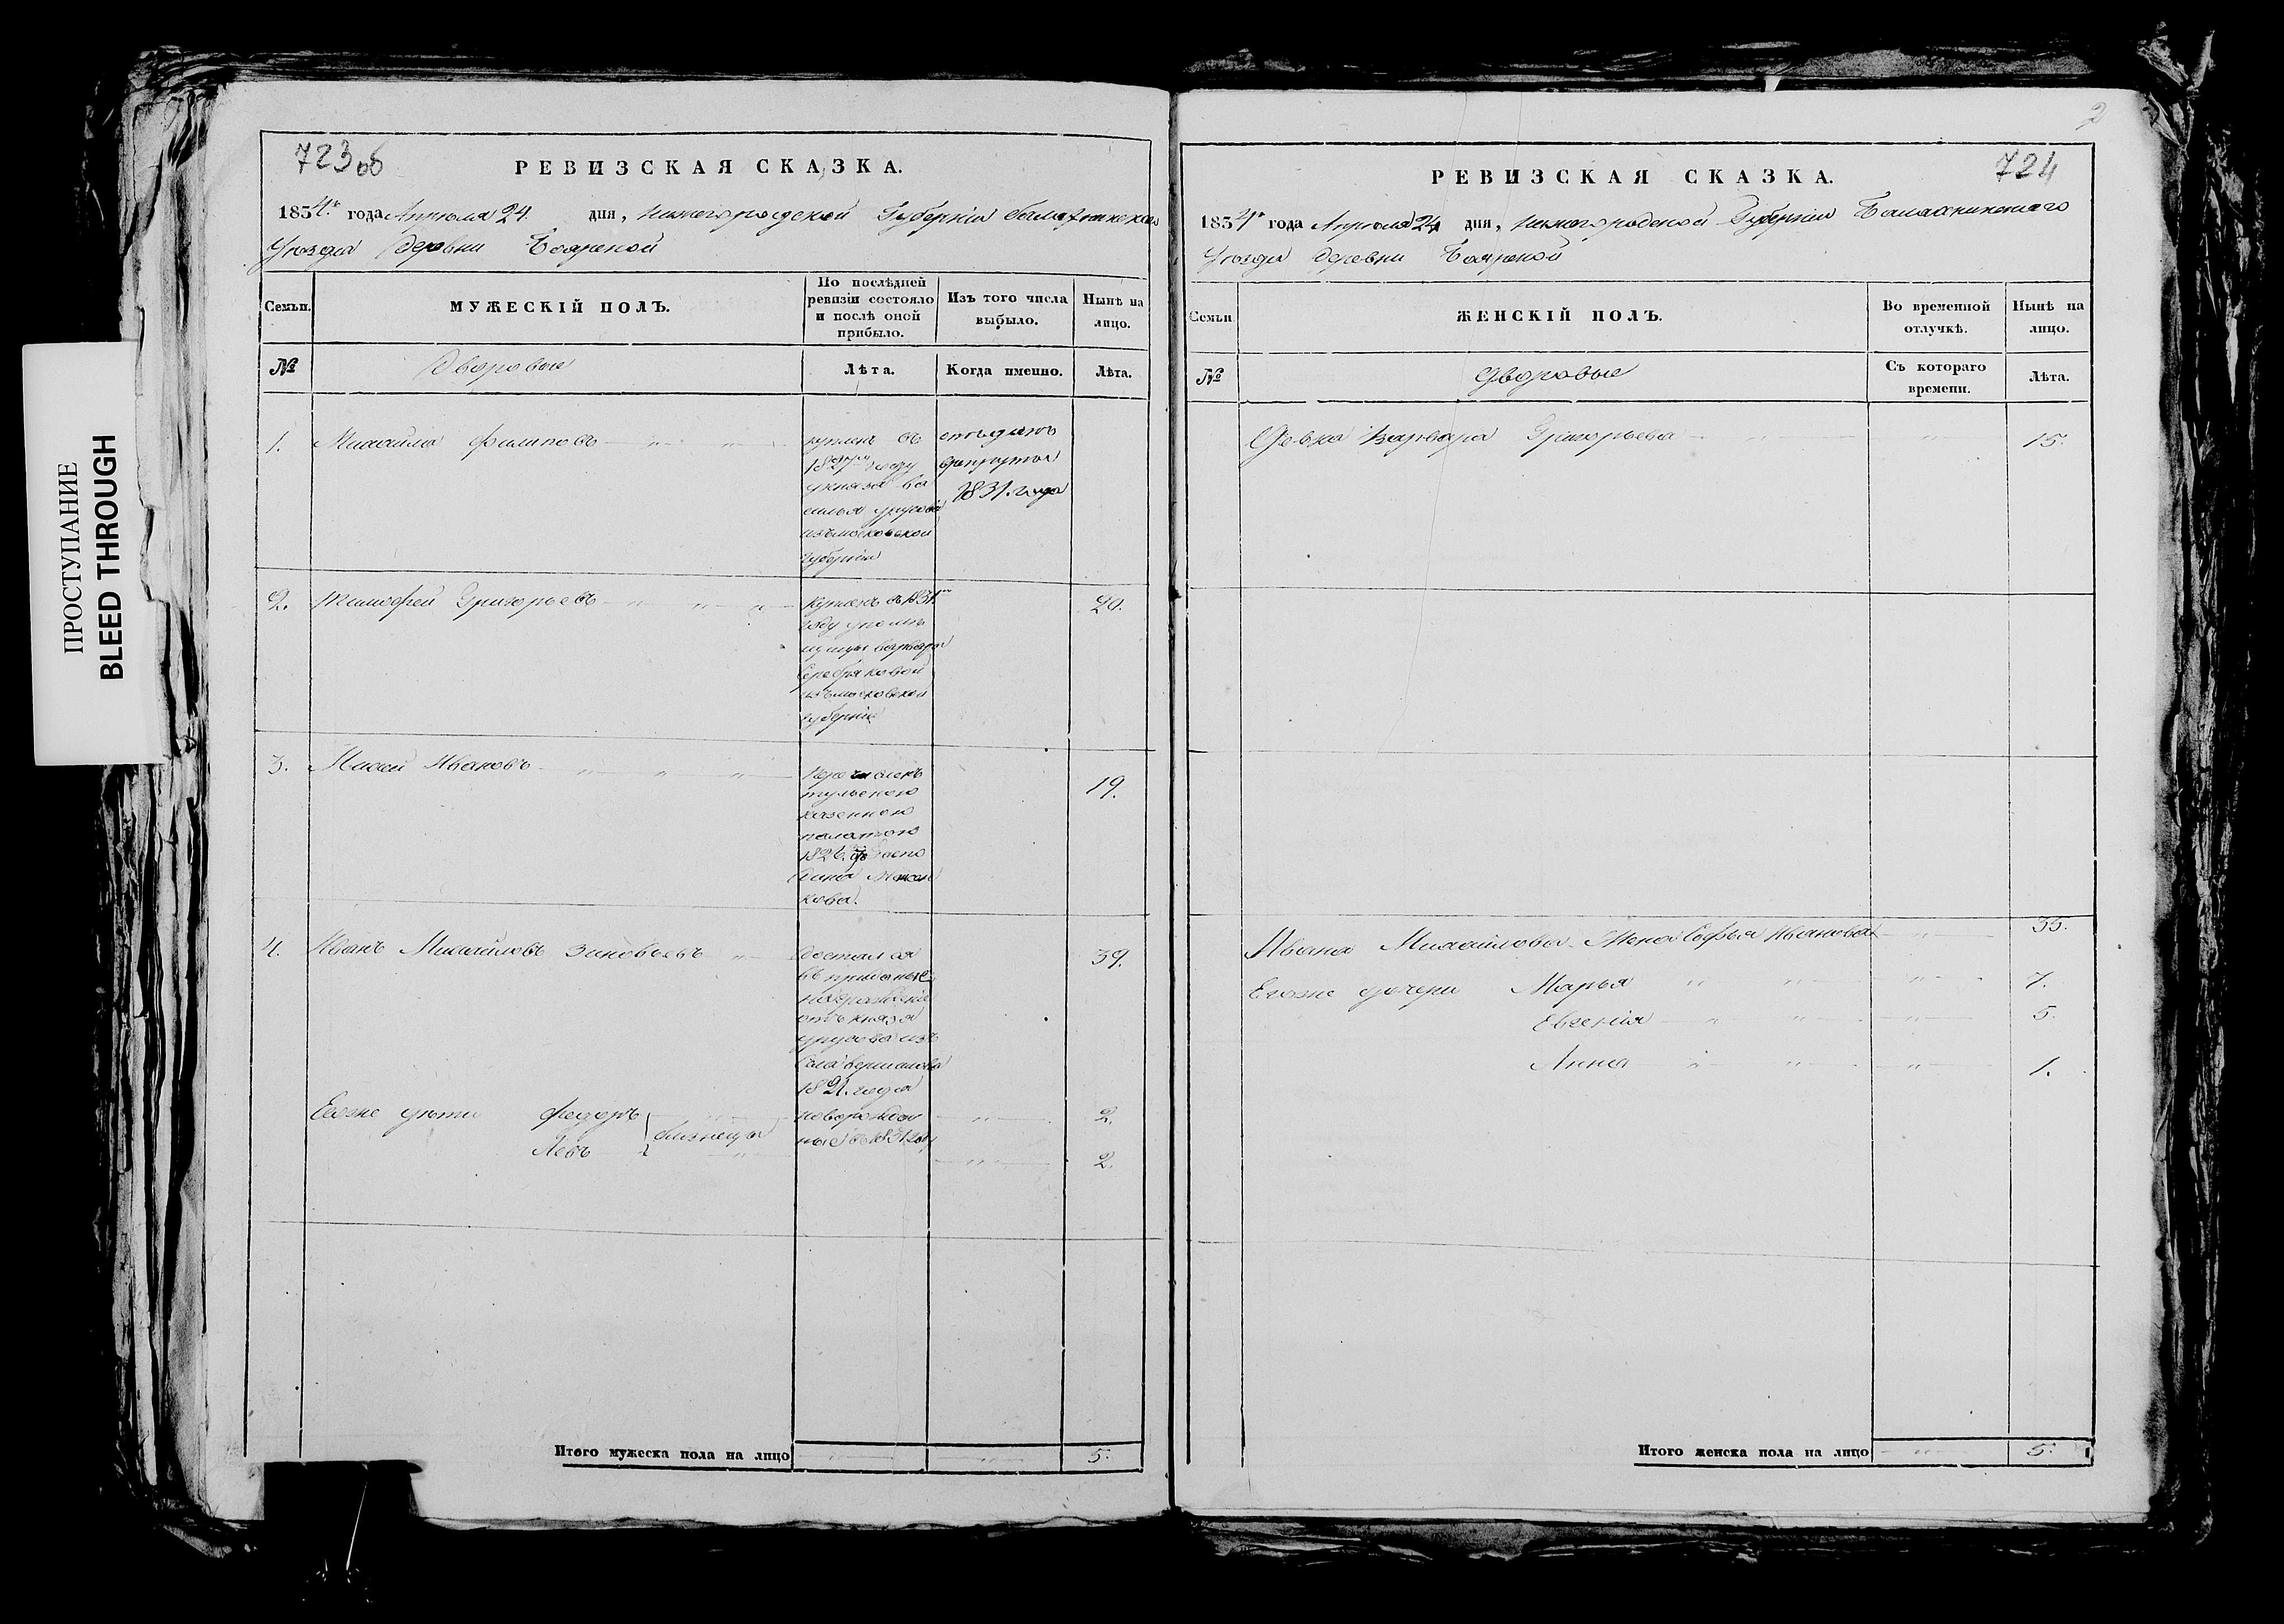 ПРОСТУПАНИЕ
BLEED THROUGH
723 об
РЕВИЗСКАЯ СКАЗКА.
1834го года Апреля 24 дня, Нижегородской Губерніи Балахнинскаго
Уезда деревни Боярской
Семьи.
МУЖЕСКІЙ ПОЛЪ.
По послѣдней
ревизіи состояло
и послѣ оной
прибыло.
Изъ того числа
выбыло.
Нынѣ на
лицо.
№
Дворовые
Лѣта.
Когда именно.
Лѣта.
1. Михайло Филиповъ
купленъ въ
1827м году
у князя Ва
силья Урусова
изъ московской
губерніи
отъданъ
врекруты
1831. года
2. Тимофей Григорьевъ
купленъ в 1831м
году упоме
щицы варвары
Серебряковой
изъ московской
губерніи
20.
3. Иванъ
тульскою
казенною
палатою
19.
4. Иванъ Михайловъ Зиновьевъ
Достался
въ приданые
награжденіе
отъ князя
урусова изъ
Села
1821. года
39.
Егоже дети Федоръ
Левъ
близнецы
новорожден
ные въ 1831 году
2.
2.
Итого мужеска пола на лицо
5.
2
724
РЕВИЗСКАЯ СКАЗКА.
1834го года Апреля 24 дня, Нижегородской Губерніи Балахнинскаго
Уезда деревни Боярской
Семьи
ЖЕНСКІЙ ПОЛЪ.
Во временной
отлучкѣ.
Нынѣ на
лицо.
№
Дворовые
Съ котораго
времени.
Лѣта.
Девка Варвара Григорьева 15.
Ивана Михайлова Жена Софья Иванова 35.
Егоже дочери Марья 7.
Евгенія 5.
Анна 1.
Итого женска пола на лицо
5.